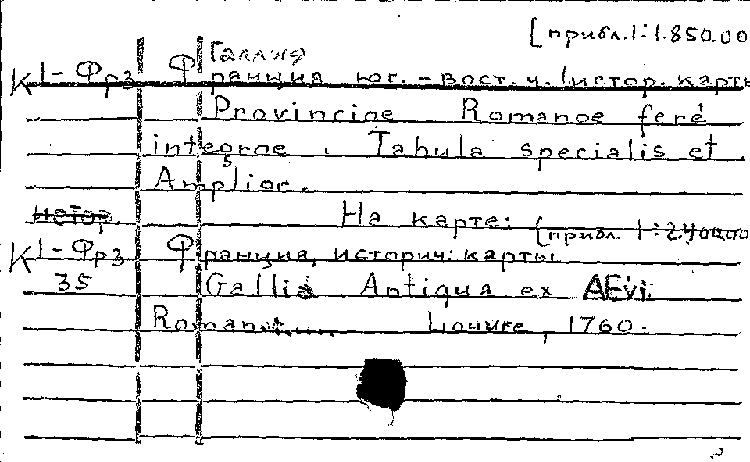 [прибл. 1:1.850.00
Галлия
К 1-Фрз Франция юг.-вост. ч. (истор. карты
Provinciae Romanae feré
integrae. Tabula specialis et
Amplior.
истор. На карте: (прибл. 1:2.400.00
К 1-Фрз Франция, историч. карты
35 Gallia Antiqua ex AEvi
Romani.... Louvre, 1760.